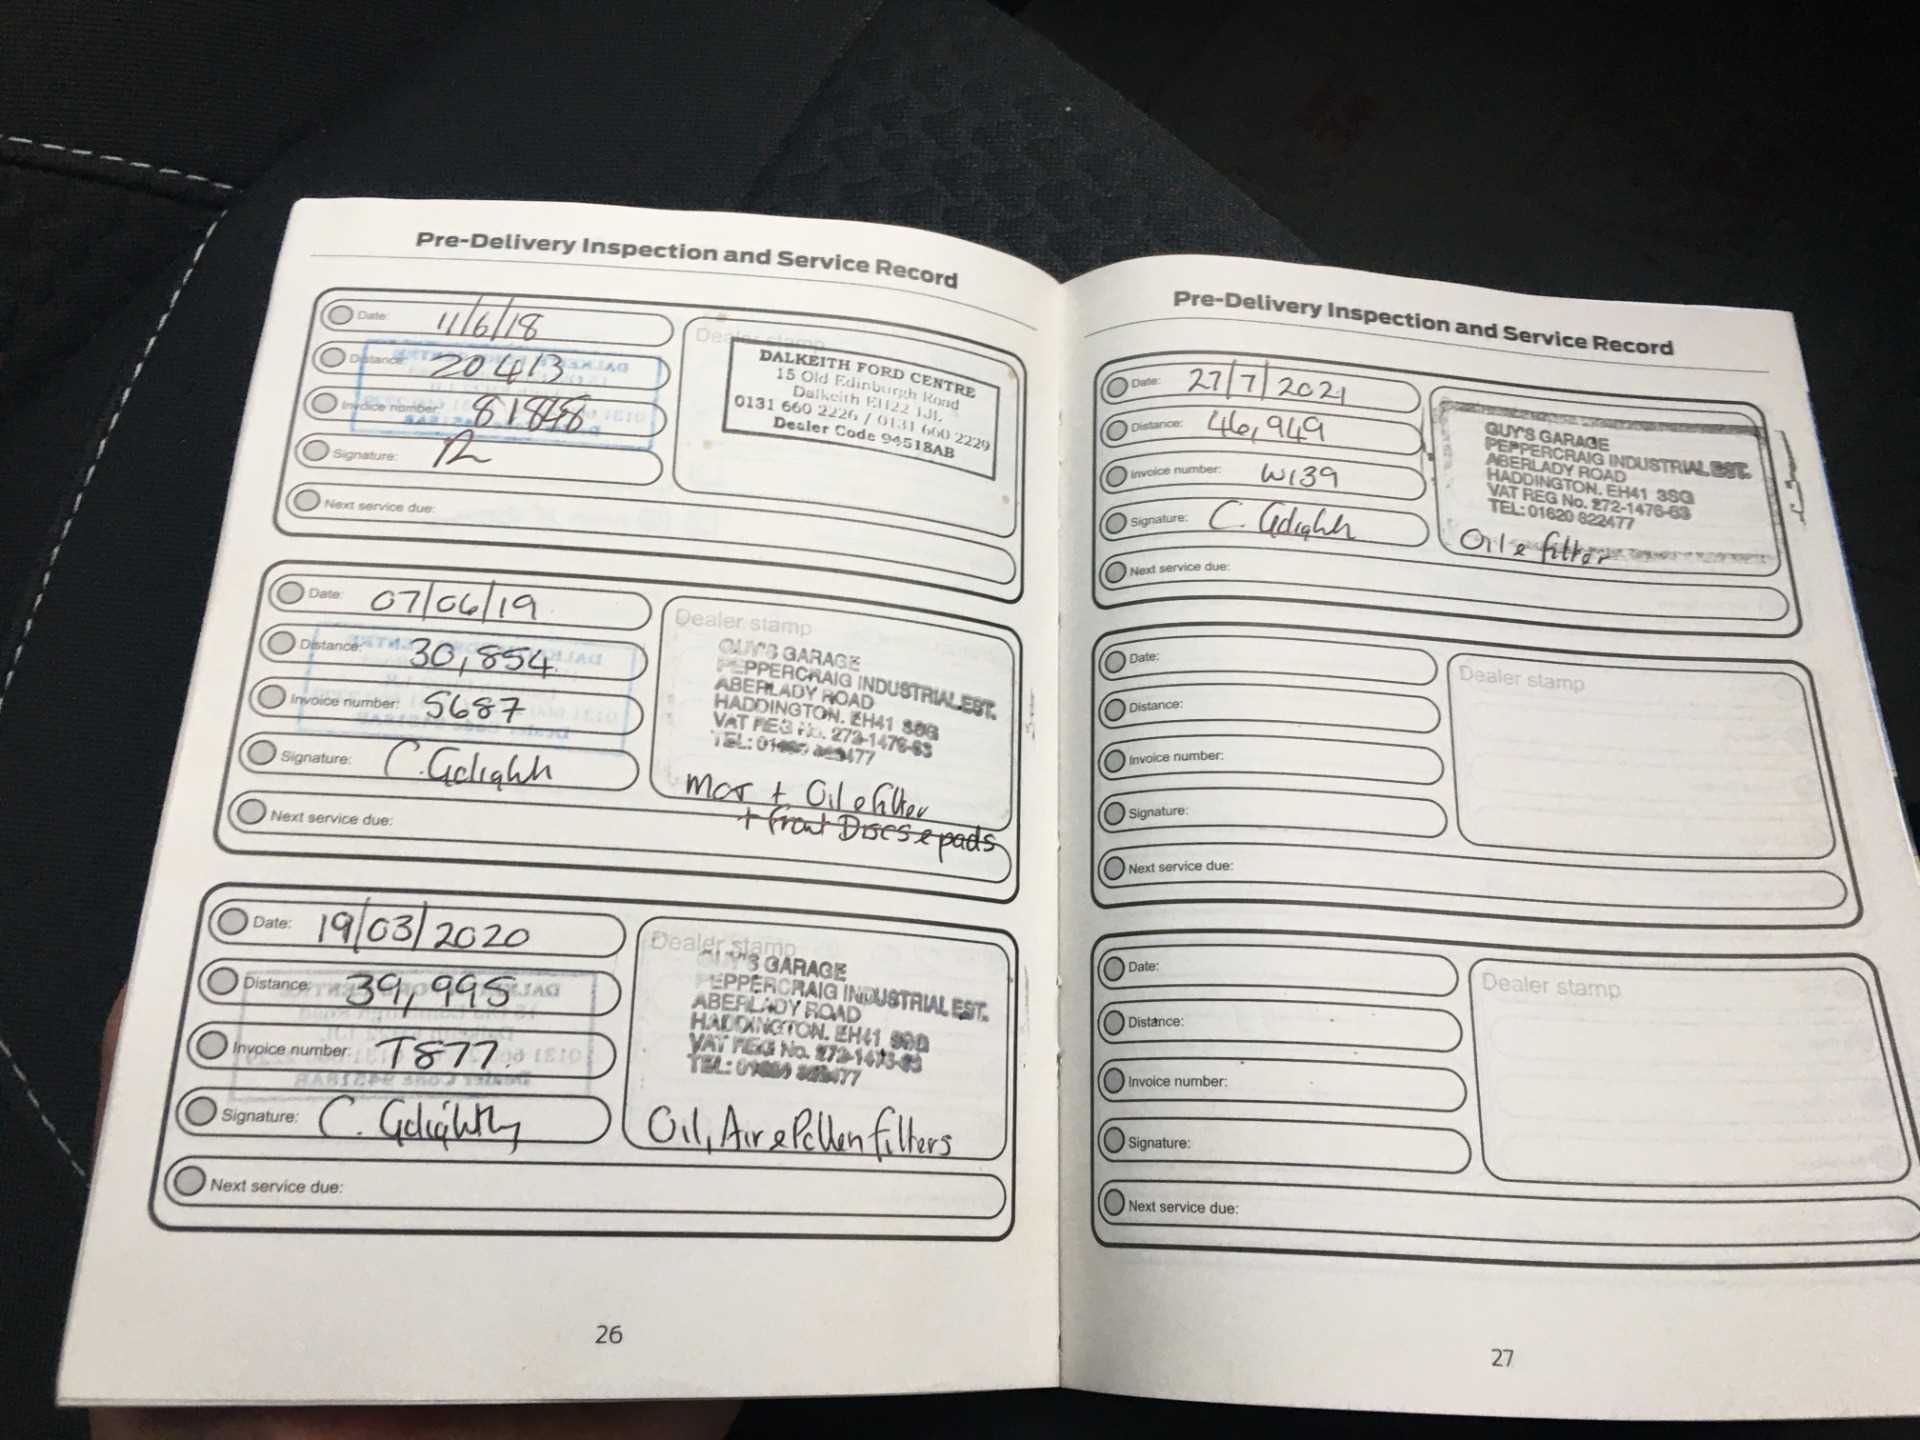 Pre-Delivery Inspection and Service Record
Date: 11/6/18
Distance: 20413
Invoice number: 81848
Signature:
Next service due:
Dealer stamp
DALKEITH FORD CENTRE
15 Old Edinburgh Road
Dalkeith EH22 1JL
0131 660 2226 / 0131 660 2229
Dealer Code 94518AB
Date: 07/06/19
Distance: 30,854
Invoice number: S687
Signature: C.
Next service due:
Dealer stamp
GUY'S GARAGE
PEPPERCRAIG INDUSTRIAL EST.
ABERLADY ROAD
HADDINGTON. EH41 3SG
VAT REG No. 272-1476-63
TEL: 01620 822477
MOT + Oil & filter
+ front Discs & pads
Date: 19/03/2020
Distance: 39,995
Invoice number: T877.
Signature: C.
Next service due:
Dealer stamp
GUY'S GARAGE
PEPPERCRAIG INDUSTRIAL EST.
ABERLADY ROAD
HADDINGTON. EH41 3SG
VAT REG No. 272-1476-63
TEL: 01620 822477
Oil, Air & Pollen filters
26
Pre-Delivery Inspection and Service Record
Date: 27/7/2021
Distance: 46,949
Invoice number: W139
Signature: C.
Next service due:
GUY'S GARAGE
PEPPERCRAIG INDUSTRIAL EST.
ABERLADY ROAD
HADDINGTON. EH41 3SG
VAT REG No. 272-1476-63
TEL: 01620 822477
Oil & filter
Date:
Distance:
Invoice number:
Signature:
Next service due:
Dealer stamp
Date:
Distance:
Invoice number:
Signature:
Next service due:
Dealer stamp
27